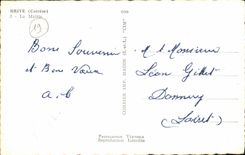 BRIVE (Corrèze)
2 - La Mairie
19
Bons Souvenirs
et Bons Vœux
A-C
Mr et Monsieur
Léon Gillet
Donnery
(Loiret)
Reproduction Interdite